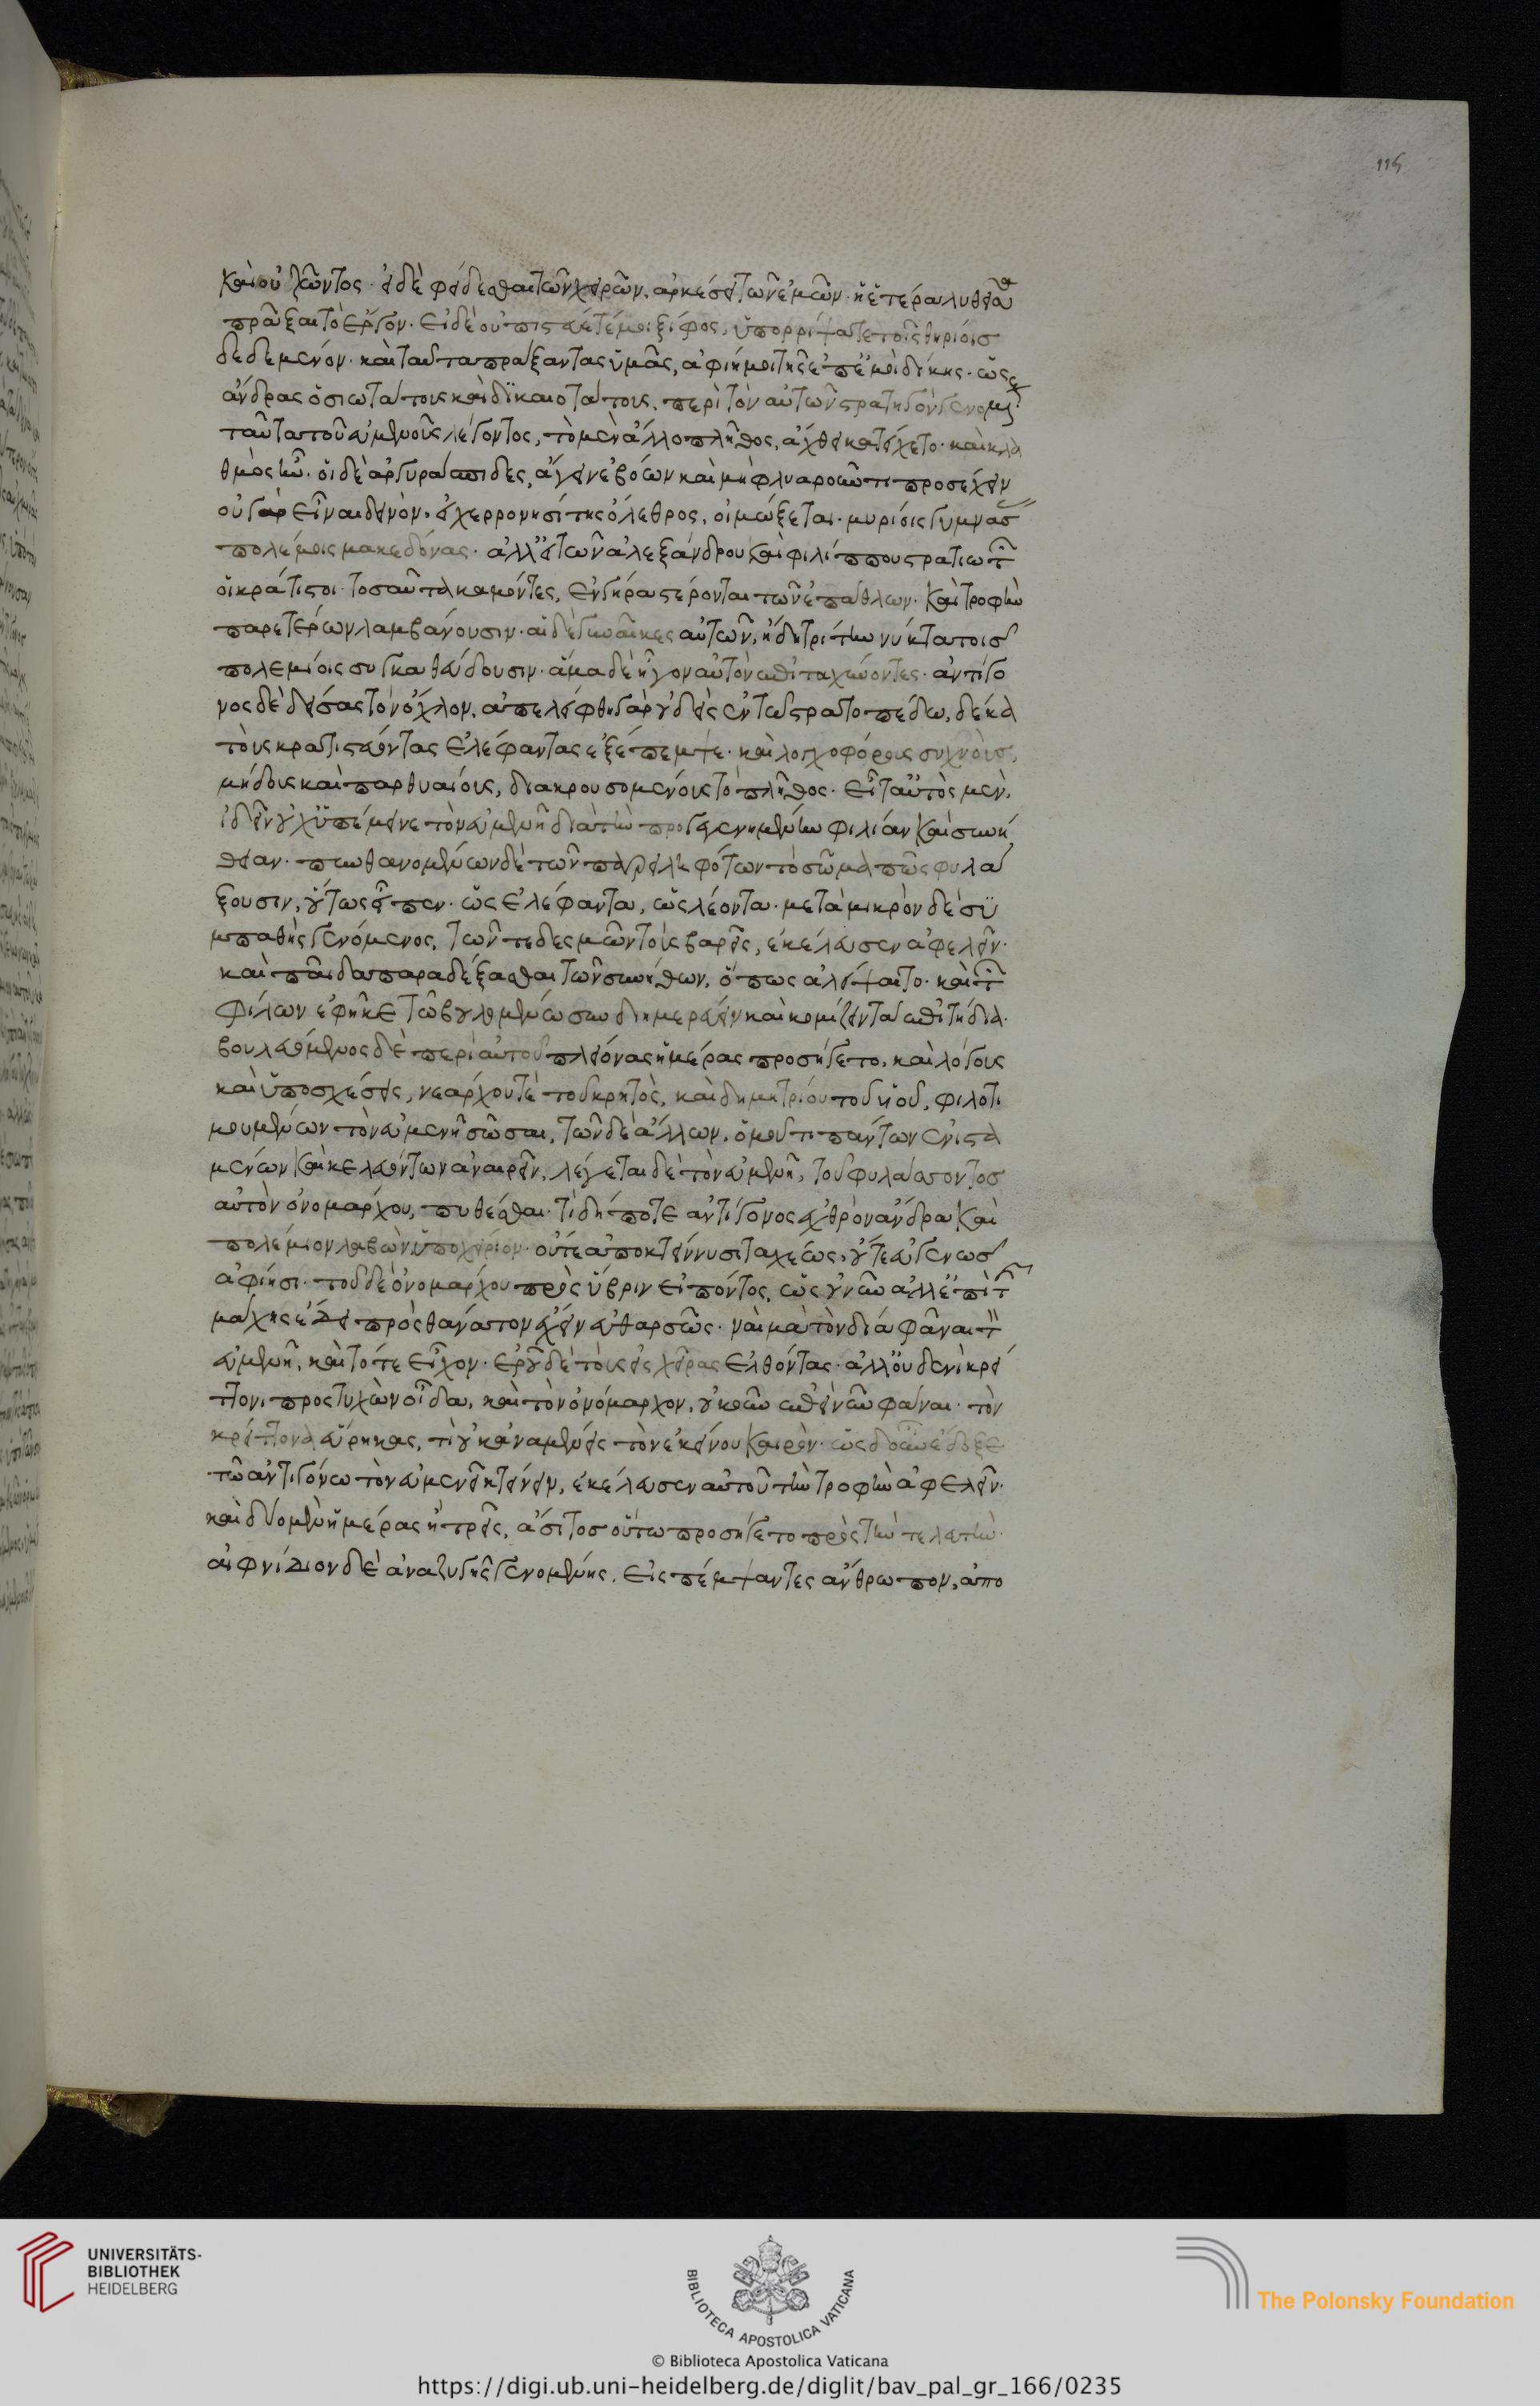 115
καὶ οὐ ζῶντος. εἰ δὲ φείδεσθαι τῶν χειρῶν, ἀρκέσει τῶν ἐμῶν. ἡ ἑτέρα λυθεῖσα
πρᾶξαι τὸ ἔργον. εἰ δὲ οὐ πιστεύετέ μοι ξίφος, ὑπορρίψατε τοῖς θηρίοις
δεδεμένον. καὶ ταῦτα πράξαντας ὑμᾶς, ἀφίημι τῆς ἐπ' ἐμοὶ δίκης. ὡς
ἄνδρας ὁσιωτάτους καὶ δικαιοτάτους, περὶ τὸν αὑτῶν στρατηγὸν γενομέν
ταῦτα τοῦ εὐμενοῦς λέγοντος, τὸ μὲν ἄλλο πλῆθος, ἄχθει κατείχετο. καὶ κλα
θμὸς ἦν. οἱ δὲ ἀργυράσπιδες, ἄγειν ἐβόων καὶ μὴ φλυαροῦντι προσέχειν
οὐ γὰρ εἶναι δεινὸν, εἰ χερρονησίτης ὄλεθρος, οἰμώξεται. μυρίοις γυμνάσ
πολέμοις μακεδόνας. ἀλλ' εἰ τῶν ἀλεξάνδρου καὶ φιλίππου στρατιωτ
οἱ κράτιστοι τοσαῦτα καμόντες, ἐν γήρᾳ στέρονται τῶν ἐπάθλων. καὶ τροφὴν
παρ' ἑτέρων λαμβάνουσιν. αἱ δὲ γυναῖκες αὐτῶν, ἤδη τρίτην νύκτα τοῖς
πολεμίοις συγκαθεύδουσιν. ἅμα δὲ ἦγον αὐτὸν ἐπιταχύνοντες. ἀντίγο
νος δὲ δείσας τὸν ὄχλον, ἀπελείφθη γὰρ οὐδεὶς ἐν τῷ στρατοπέδῳ, δέκα
τοὺς κρατιστεύοντας ἐλέφαντας ἐξέπεμψε. καὶ λογχοφόρους συχνοὺς,
μήδους καὶ παρθυαίους, διακρουσομένους τὸ πλῆθος. εἶτ' αὐτὸς μὲν,
ἰδεῖν οὐχ ὑπέμεινε τὸν εὐμενῆ διὰ τὴν προγεγενημένην φιλίαν καὶ συνή
θειαν. πυνθανομένων δὲ τῶν παρειληφότων τὸ σῶμα πῶς φυλά
ξουσιν, οὕτως εἶπεν. ὡς ἐλέφαντα, ὡς λέοντα. μετὰ μικρὸν δὲ συ
μπαθὴς γενόμενος, τῶν τε δεσμῶν τοὺς βαρεῖς, ἐκέλευσεν ἀφελεῖν.
καὶ παῖδα παραδέξασθαι τῶν συνήθων, ὅπως ἀλείψαιτο. καὶ τ
φίλων ἐφῆκε τῷ βουλομένῳ συνδιημερεύειν καὶ κομίζειν τὰ ἐπιτήδεια.
βουλευόμενος δὲ περὶ αὐτοῦ πλείονας ἡμέρας προσήγετο, καὶ λόγους
καὶ ὑποσχέσεις, νεάρχου τε τοῦ κρητὸς, καὶ δημητρίου τοῦ υἱοῦ, φιλοτι
μουμένων τὸν εὐμενῆ σῶσαι, τῶν δὲ ἄλλων, ὁμοῦ τι πάντων ἐνιστα
μένων καὶ κελευόντων ἀναιρεῖν, λέγεται δὲ τὸν εὐμενῆ, τοῦ φυλάσσοντος
αὐτὸν ὀνομάρχου, πυθέσθαι. τί δήποτε ἀντίγονος ἐχθρὸν ἄνδρα καὶ
πολέμιον λαβὼν ὑποχείριον. οὔτε ἀποκτείννυσι ταχέως, οὔτε εὐγενῶς
ἀφίησι. τοῦ δὲ ὀνομάρχου πρὸς ὕβριν εἰπόντος, ὡς οὐ νῦν ἀλλ' ἐπὶ τ
μάχης ἔδει πρὸς θάνατον ἔχειν εὐθαρσῶς. ναὶ μὰ τὸν δία φάναι τ
εὐμενῆ, καὶ τότε εἶχον. ἐροῦ δὲ τοὺς εἰς χεῖρας ἐλθόντας. ἀλλ' οὐδενὶ κρεί
ττονι προστυχὼν οἶδα, καὶ τὸν ὀνόμαρχον, οὐκοῦν ἐπεὶ νῦν φάναι. τὸν
κρείττονα εὕρηκας, τί οὐκ ἀναμένεις τὸν ἐκείνου καιρὸν. ὡς δ' οὖν ἔδοξε
τῷ ἀντιγόνῳ τὸν εὐμενῆ κτείνειν, ἐκέλευσεν αὐτοῦ τὴν τροφὴν ἀφελεῖν.
καὶ δύο μὲν ἡμέρας ἢ τρεῖς, ἄσιτος οὕτω προσήγετο πρὸς τὴν τελευτὴν.
αἰφνίδιον δὲ ἀναζυγῆς γενομένης, εἰσπέμψαντες ἄνθρωπον, ἀπο
UNIVERSITÄTS-
BIBLIOTHEK
HEIDELBERG
BIBLIOTECA APOSTOLICA VATICANA
The Polonsky Foundation
© Biblioteca Apostolica Vaticana
https://digi.ub.uni-heidelberg.de/diglit/bav_pal_gr_166/0235